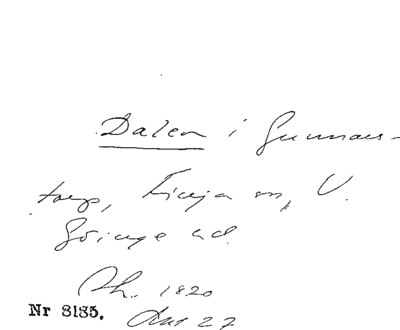 Dalen i Gunnars-
torp, Finja sn, V.
Göinge hd.
Ark. 1820
Nr 8185. Akt 27